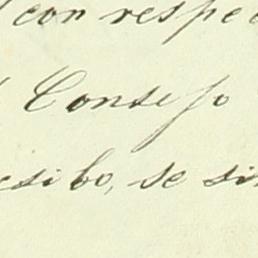 con respec
Consejo
esibo, se si